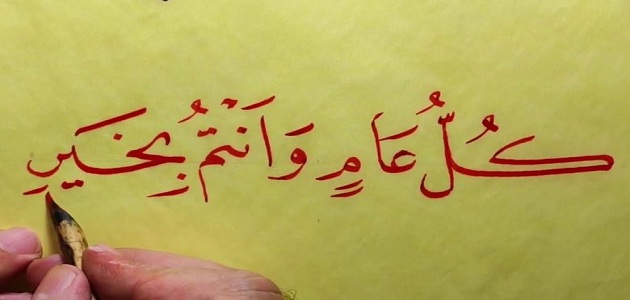 كُلُّ عَامٍ وَأَنْتُمُ بِخَيْرٍ